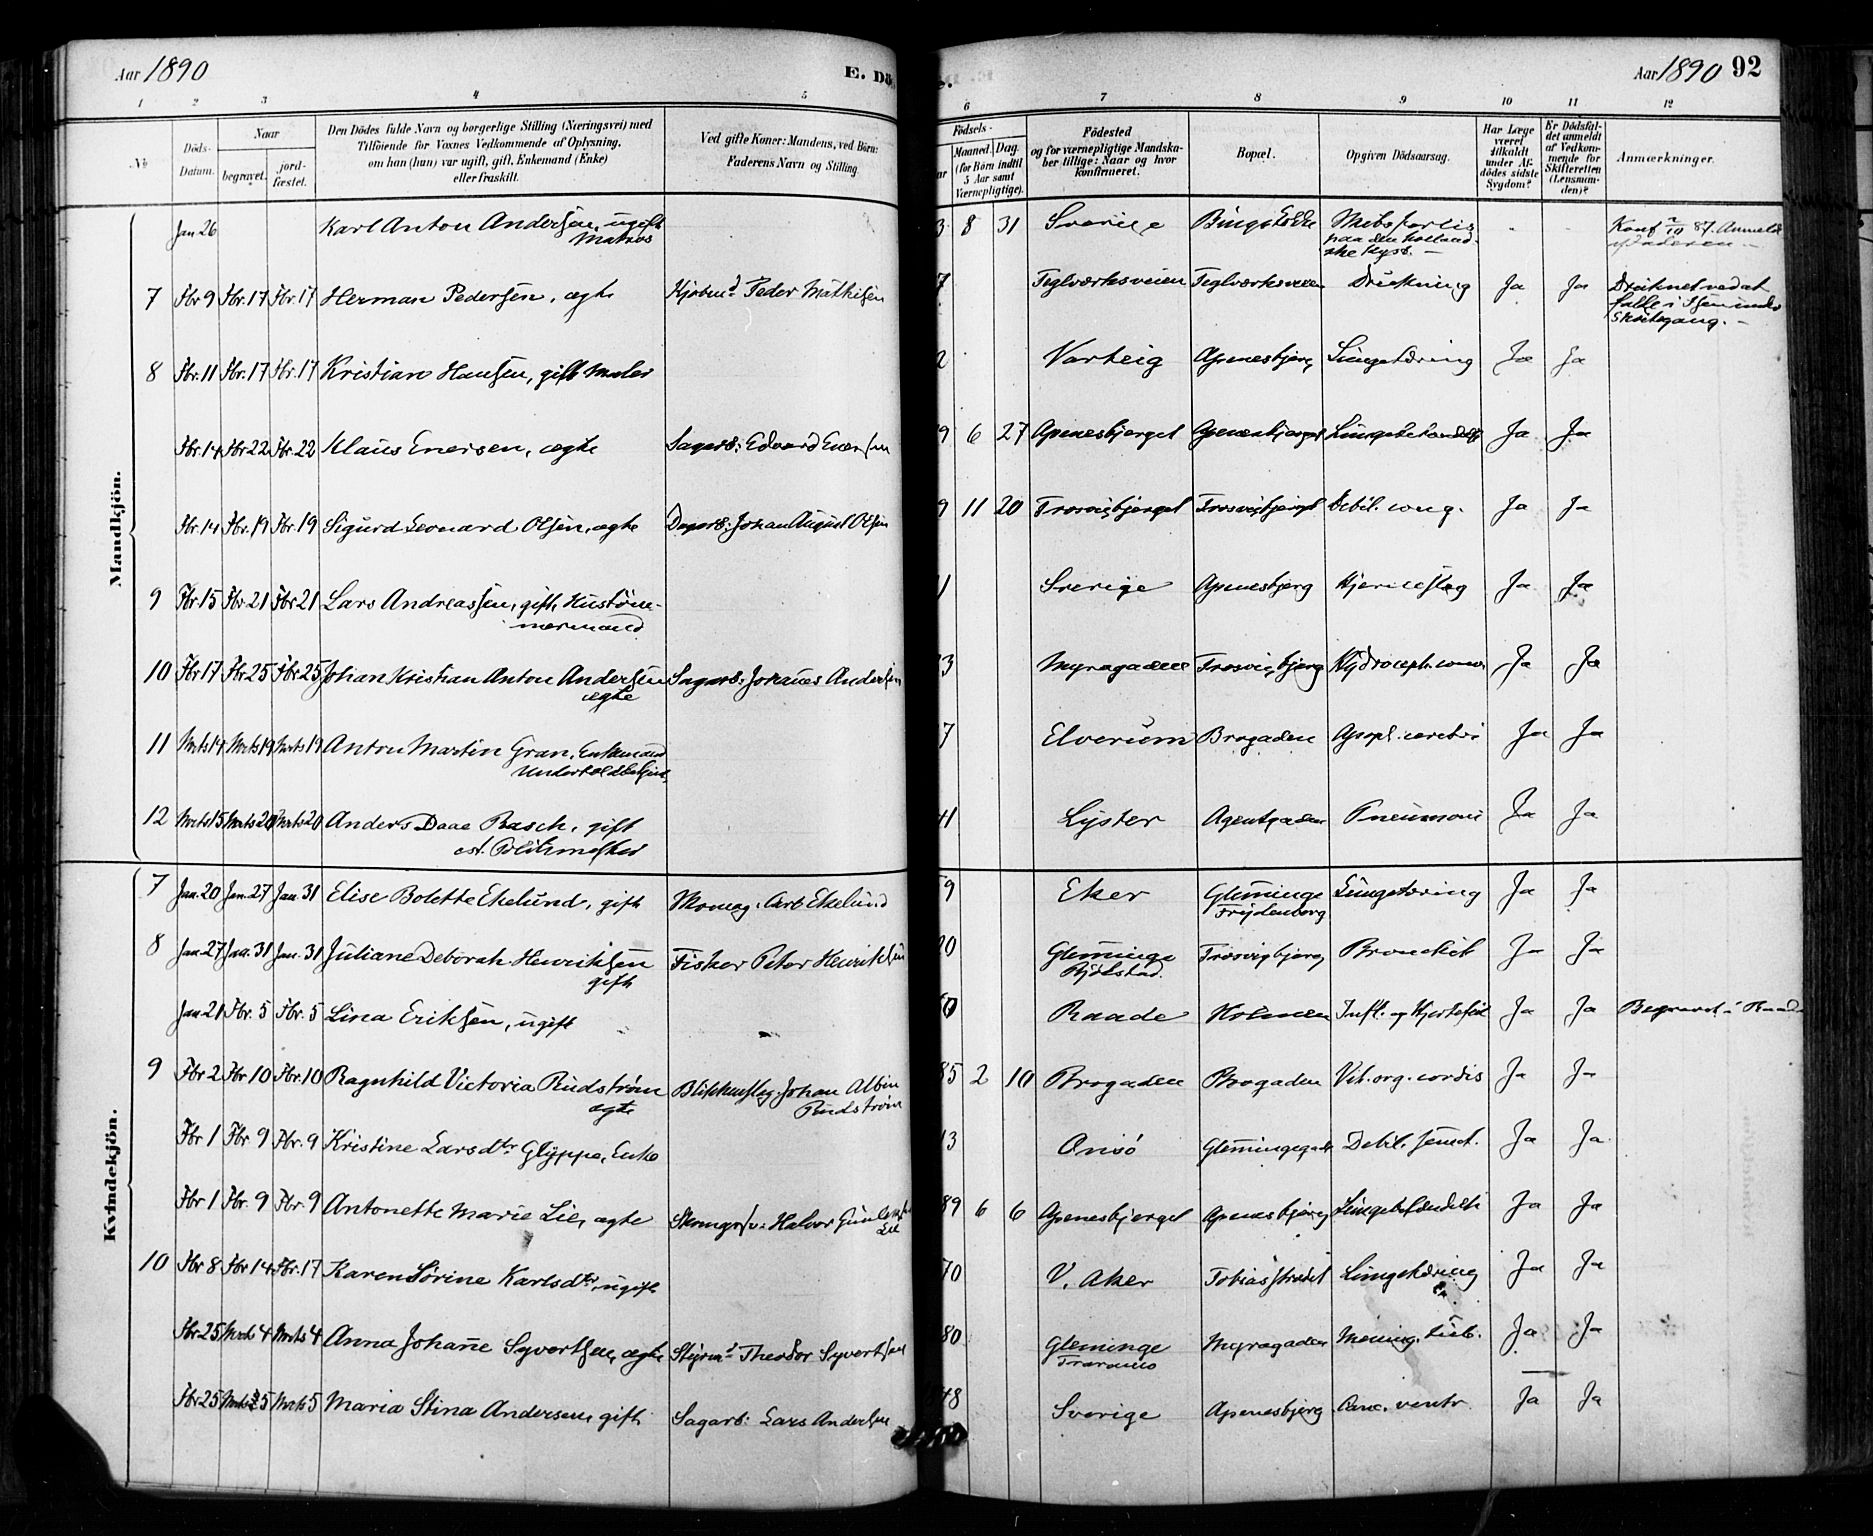 Aar 1890
E. Dø
Aar 1890 92
1 2 3 4 5 6 7 8 9 10 11 12
№
Døds-
Datum.
Naar
begravet.
jord-
fæstet.
Den Dødes fulde Navn og borgerlige Stilling (Næringsvei) med
Tilføiende for Voxnes Vedkommende af Oplysning,
om han (hun) var ugift, gift, Enkemand (Enke)
eller fraskilt.
Ved gifte Koner: Mandens, ved Børn:
Faderens Navn og Stilling.
Fødsels-
Maaned. Dag.
(for Børn indtil
5 Aar samt
Værnepligtige).
Fødested
og for værnepligtige Mandska-
ber tillige: Naar og hvor
konfirmeret.
Bopæl.
Opgiven Dødsaarsag.
Har Læge
været
tilkaldt
under Af-
dødes sidste
Sygdom?
Er Dødsfal-
det anmeldt
af Vedkom-
mende for
Skifteretten
(Lensman-
den)?
Anmærkninger.
Mandkjøn.
Jan 26 Karl Anton Andersen, ugift 3 8 31 Sverige Skibsforlis Konf 87. Anmeldt
Matros paa den holland- af Faderen
ske Kyst.
7 Fbr 9 Fbr. 17 Fbr 17 Herman Pedersen, ægte Kjøbmd Peder Mathisen 7 Teglværksveien Teglværksveien Drukning Ja Ja Druknet ved at
falde i under
Skøitegang.
8 Fbr. 11 Fbr. 17 Fbr. 17 Kristian Hansen, gift Maler 2 Varteig Apenesbjerg Lungetæring Ja Ja
Fbr. 14 Fbr 22 Fbr. 22 Klaus Enersen, ægte Sagarb: Edvard Enersen 9 6 27 Apenesbjerget Apenesbjerget Ja Ja
Fbr. 14 Fbr. 19 Fbr. 19 Sigurd Leonard Olsen, ægte Dagarb: Johan August Olsen 9 11 20 Trosvigbjerget Trosvigbjerget Debil. cong. Ja Ja
9 Fbr. 15 Fbr. 21 Fbr 21 Lars Andreassen, gift, Hustøm- 1 Sverige Apenesbjerg Hjerneslag Ja Ja
mermand
10 Fbr 17 Fbr 25 Fbr 25 Johan Kristian Anton Andersen Sagarb: Johanes Andersen 3 Myragaden Trosvigbjerg Ja Ja
ægte
11 Mrts 14 Mrts 19 Mrts 19 Anton Martin Gran, Enkemand 7 Elverum Brogaden Apopl. cerebri Ja Ja
12 Mrts 15 Mrts 20 Mrts 20 Anders Daae Rasch, gift 41 Lyster Agentgaden Pneumoni Ja Ja
cst. Politimester
Kvindekjøn.
7 Jan. 20 Jan. 27 Jan 31 Elise Bolette Ekelund, gift Skomag. Carl Ekelund 59 Eker Gleminge Lungetæring Ja Ja
Frydenborg
8 Jan. 27 Jan. 31 Jan. 31 Juliane Deborah Henriksen Fisker Peter Henriksen 20 Gleminge Trosvigbjerg Bronchit Ja Ja
gift
Jan 21 Fbr. 5 Fbr. 5 Lina Eriksen, ugift Raade Holmen Infl. og Hjertefeil Ja Ja Begravet i Raade
9 Fbr 2 Fbr 10 Fbr. 10 Ragnhild Victoria Rudstrøm Blikkenslag. Johan Albin 85 2 10 Brogaden Brogaden Vit. org. cordis Ja Ja
ægte Rudstrøm
Fbr 1 Fbr 9 Fbr. 9 Kristine Larsdtr Glyppe, Enke 13 Onsø Glemingegade Debil. senect. Ja Ja
Fbr 1 Fbr. 9 Fbr 9 Antonette Marie Lie, ægte Halvor 89 6 6 Apenesbjerget Apenesbjerg Ja Ja
Lie
10 Fbr 8 Fbr 14 Fbr. 17 Karen Sørine Karlsdtr, ugift 70 V. Aker Tobiasstrædet Lungetæring Ja Ja
Fbr 25 Mrts 4 Mrts 4 Anna Johane Syvertsen, ægte Styrmd Theodor Syvertsen 80 Gleminge Myragaden Mening. tub. Ja Ja
Fbr 25 Mrts 5 Mrts 5 Maria Stina Andersen, gift Sagarb: Lars Andersen 48 Sverige Apenesbjerg Canc. ventr. Ja Ja